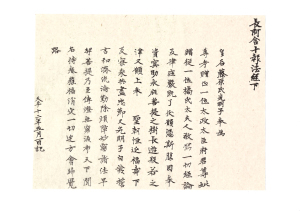 長阿含十報法經下
皇后藤原氏光明子奉爲
尊考贈正一位太政太臣府君尊妣
贈從一位橘氏太夫人敬寫一切經論
及律莊嚴既了伏願憑斯勝因奉
資冥助永庇菩提之樹長遊般若之
津又願上奉 聖朝恒延福壽下
及寮采共盡忠節又光明子自發誓
言弘濟沈淪勤除煩障妙窮諸法早
契菩提乃至傳燈無窮流布天下聞
名持卷獲福消災一切迷方會歸覺
路
天平十二年五月一日記